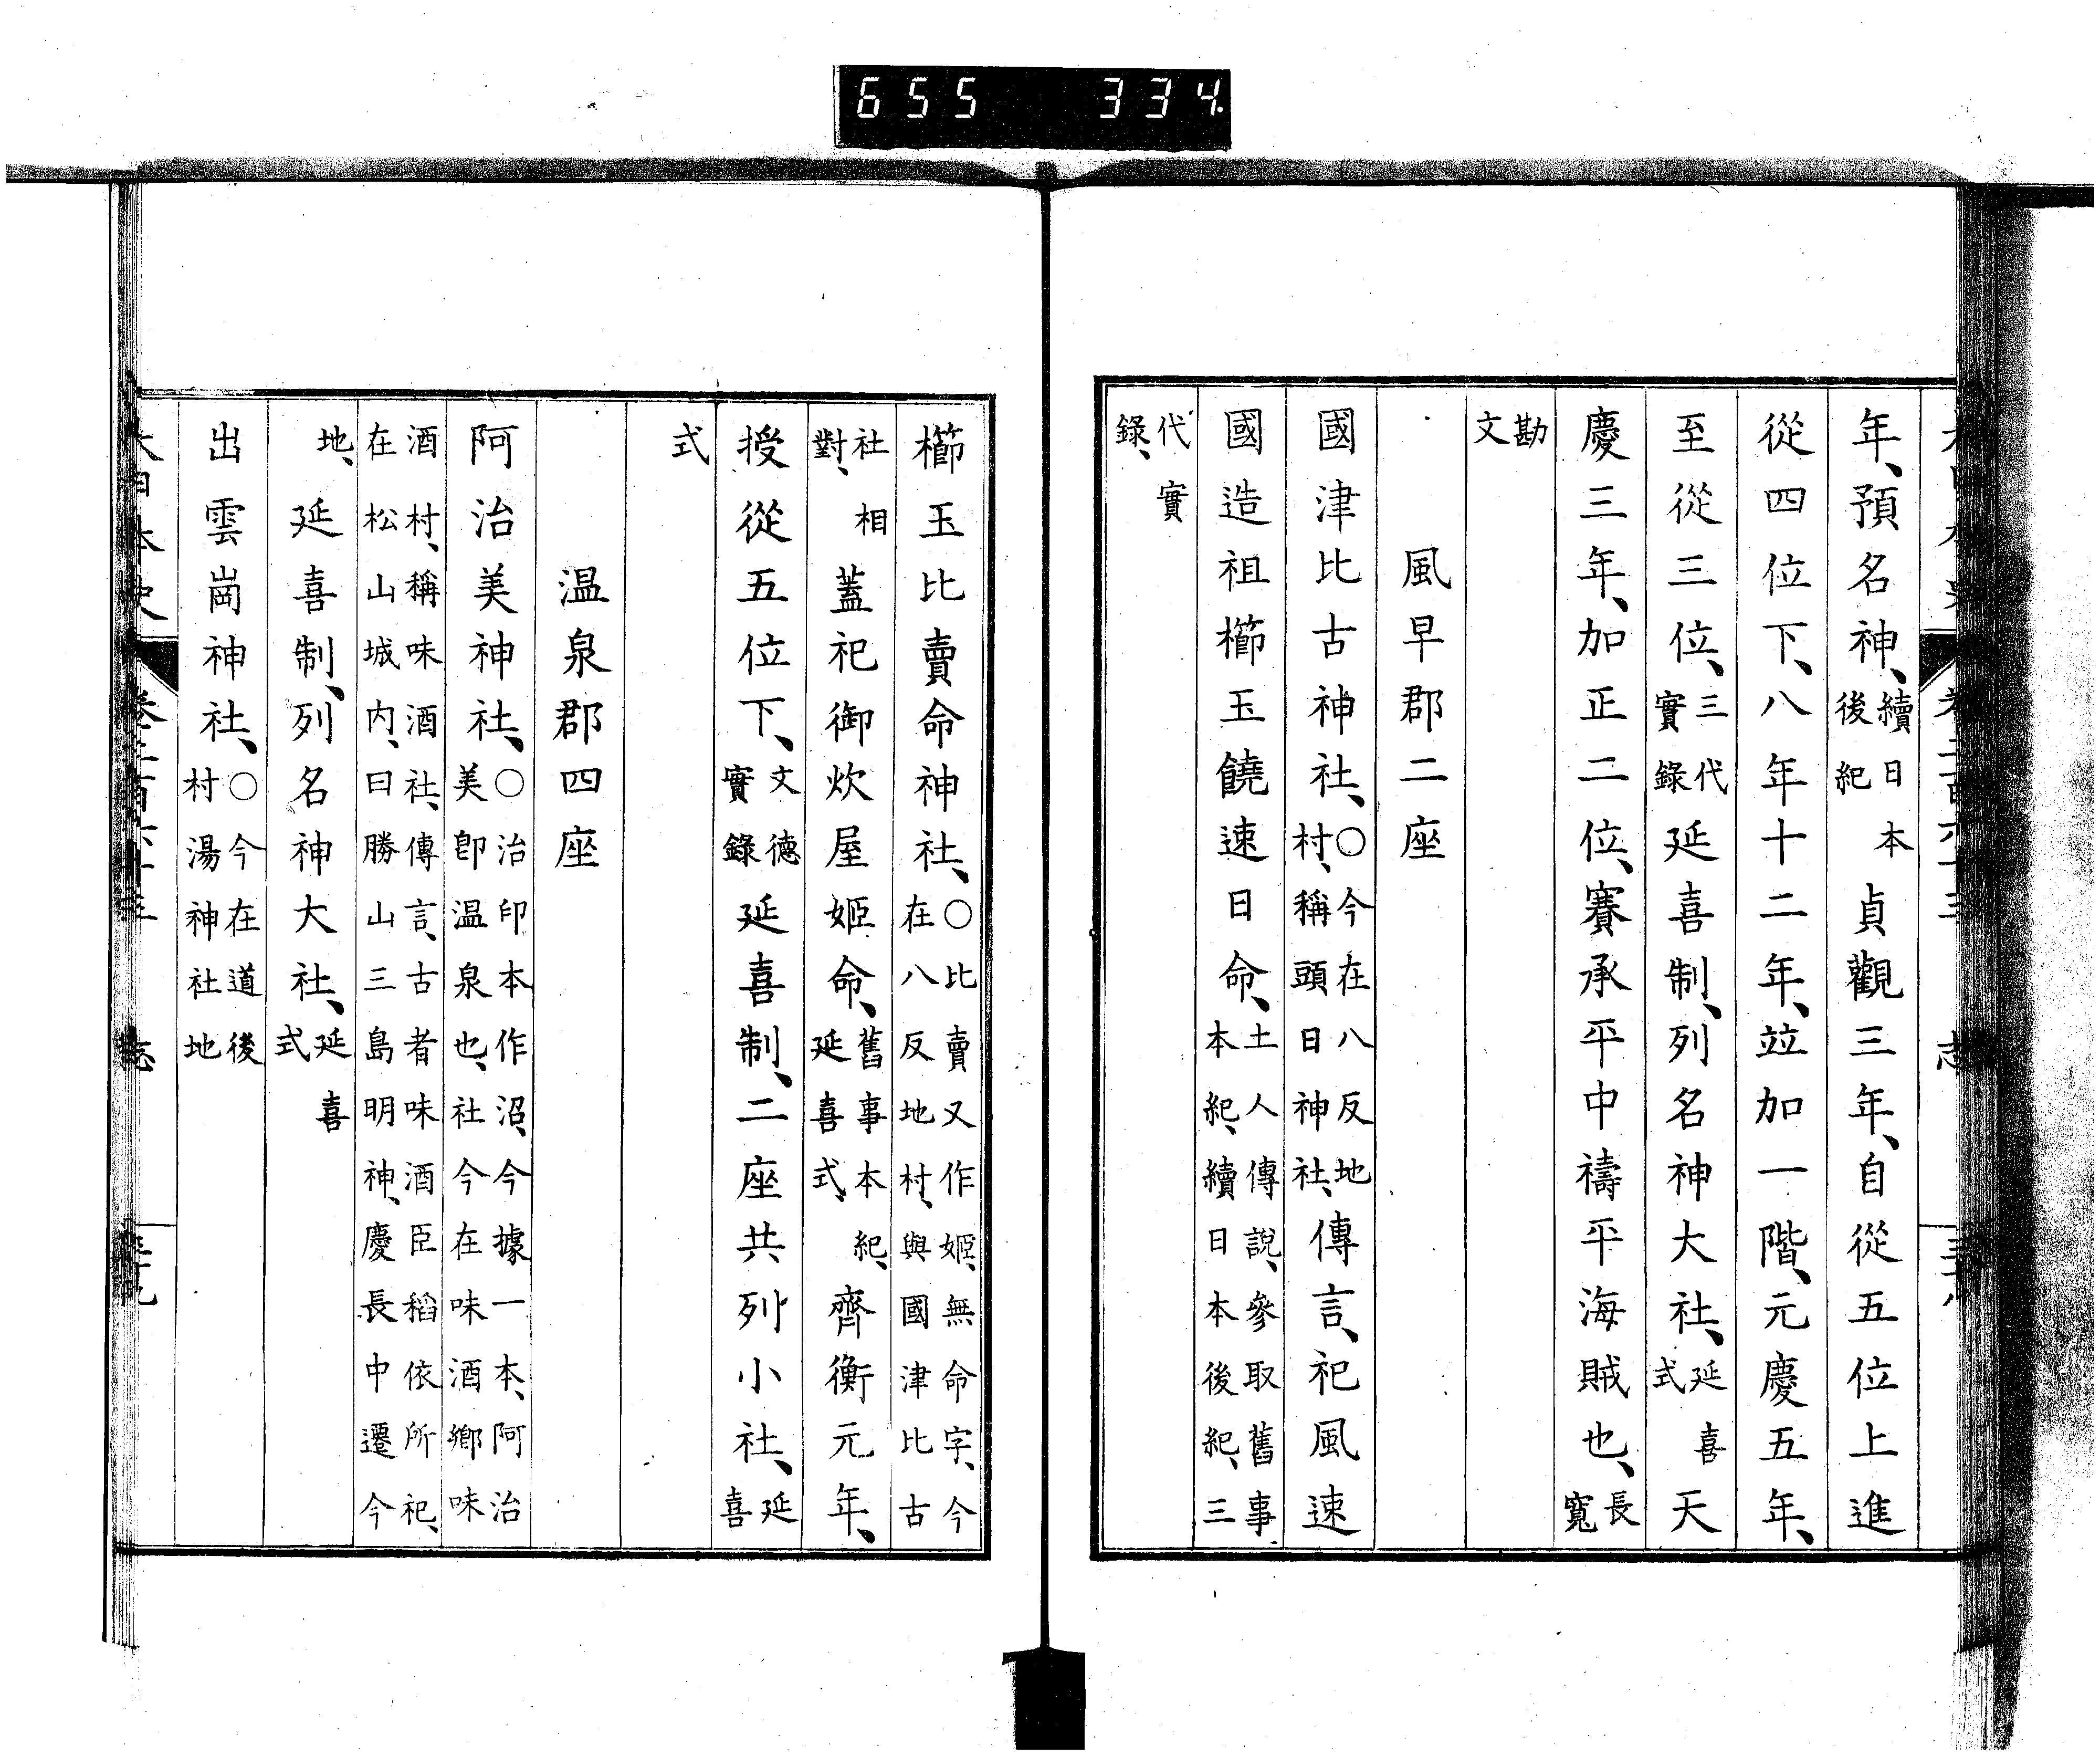 655 334
年、預名神、續日本後紀貞觀三年、自從五位上進
從四位下、八年十二年、竝加一階、元慶五年、
至從三位、三代實錄延喜制、列名神大社、延喜式天
慶三年、加正二位、賽承平中禱平海賊也、長寬
勘文
風早郡二座
國津比古神社、○今在八反地村、稱頭日神社、傳言、祀風速
國造祖櫛玉饒速日命、土人傳說、參取舊事本紀、續日本後紀、三
代實錄、
櫛玉比賣命神社、○比賣又作姬、無命字、今在八反地村、與國津比古
社相對、蓋祀御炊屋姬命、舊事本紀、延喜式、齊衡元年、
授從五位下、文德實錄延喜制、二座共列小社、延喜
式
温泉郡四座
阿治美神社、○治印本作沼、今據一本、阿治美卽温泉也、社今在味酒鄉味
酒村、稱味酒社、傳言、古者味酒臣稻依所祀、在松山城内、曰勝山三島明神、慶長中遷今
地、延喜制、列名神大社、延喜式
出雲崗神社、○今在道後村湯神社地
大日本史 卷二百六十三 志